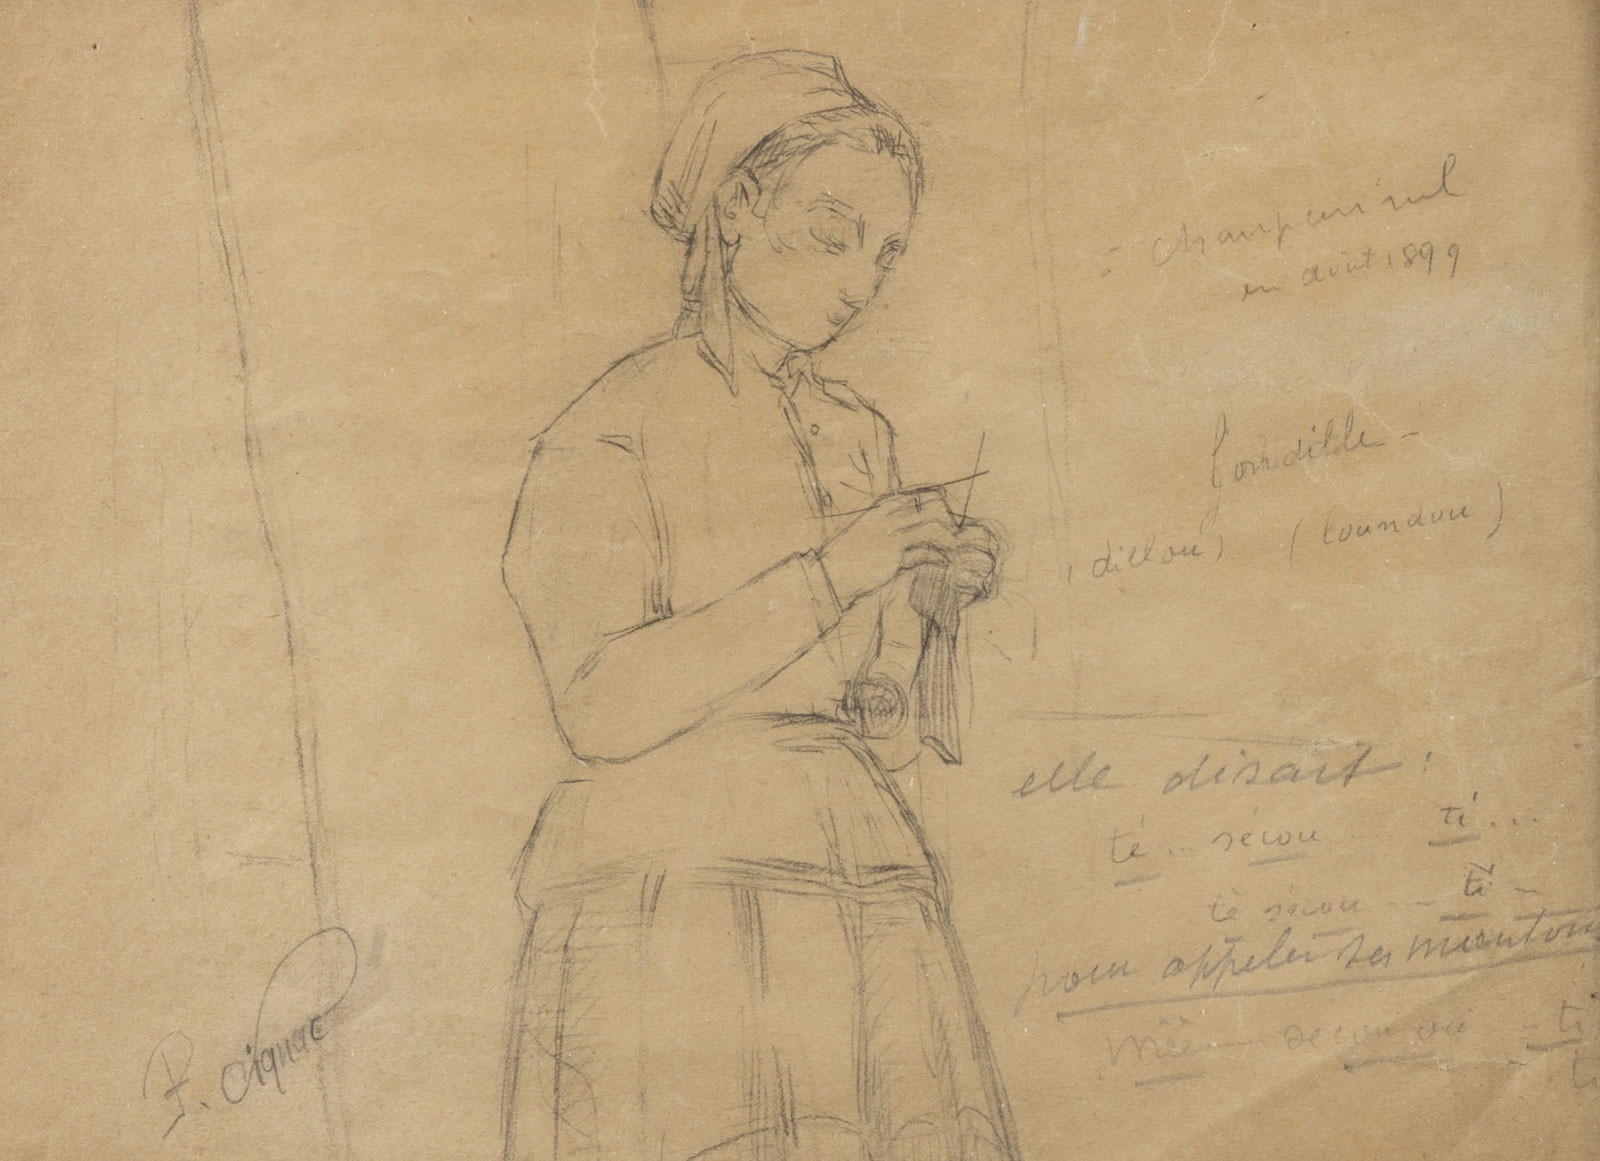 en août 1899
(dillou) (loundou)
elle disait :
té... sécou ... ti...
té sécou ... ti
pour appeler ses moutons
mêê ... secou ou ... ti
ti
P. Cignac